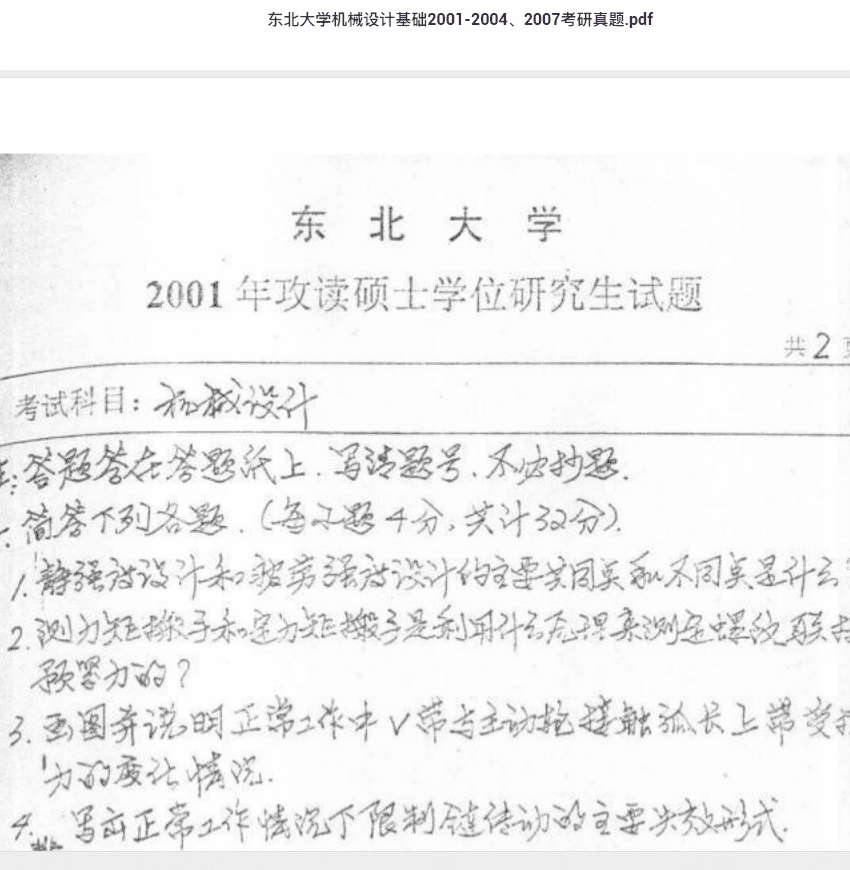 东北大学机械设计基础2001-2004、2007考研真题.pdf
东 北 大 学
2001 年攻读硕士学位研究生试题
共 2
考试科目: 机械设计
答题答在答题纸上. 写清题号. 不必抄题.
简答下列各题. (每小题 4 分, 共计 32 分).
1. 静强度设计和疲劳强度设计的主要共同点和不同点是什么
2. 测力矩搬手和定力矩搬手是利用什么原理来测定螺纹联接
预紧力的?
3. 画图并说明正常工作中 V 带与主动轮接触弧长上带受拉
力的变化情况.
4. 写出正常工作情况下限制链传动的主要失效形式.